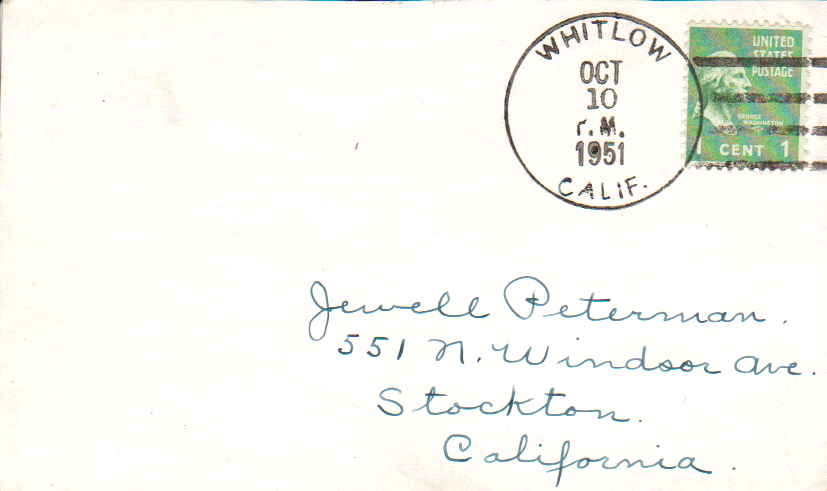 WHITLOW
OCT
10
P.M.
1951
CALIF.
UNITED
STATES
POSTAGE
GEORGE
WASHINGTON
1 CENT 1
Jewell Peterman.
551 N. Windsor Ave.
Stockton.
California.